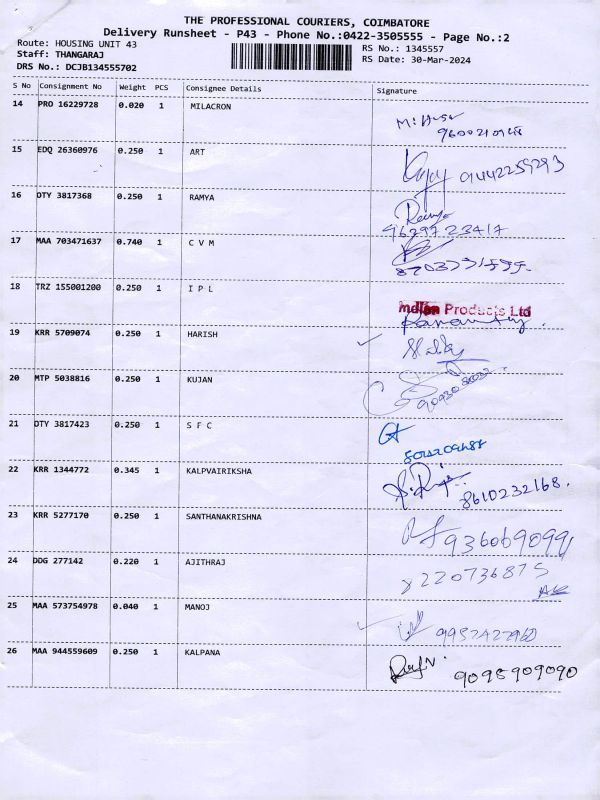 THE PROFESSIONAL COURIERS, COIMBATORE
Delivery Runsheet - P43 - Phone No.:0422-3505555 - Page No.:2
Route: HOUSING UNIT 43
RS No.: 1345557
Staff: THANGARAJ
RS Date: 30-Mar-2024
DRS No.: DCJB134555702
S No Consignment No Weight PCS Consignee Details Signature
14 PRO 16229728 0.020 1 MILACRON
15 EDQ 26360976 0.250 1 ART
9442259293
16 DTY 3817368 0.250 1 RAMYA
Ramya
9629723417
17 MAA 703471637 0.740 1 C V M
18 TRZ 155001200 0.250 1 I P L
Indian Products Ltd
19 KRR 5709074 0.250 1 HARISH
20 MTP 5038816 0.250 1 KUJAN
21 DTY 3817423 0.250 1 S F C
22 KRR 1344772 0.345 1 KALPVAIRIKSHA
8610232168.
23 KRR 5277170 0.250 1 SANTHANAKRISHNA
9360690991
24 DDG 277142 0.220 1 AJITHRAJ
8220736875
25 MAA 573754978 0.040 1 MANOJ
9952422960
26 MAA 944559609 0.250 1 KALPANA
9095909090